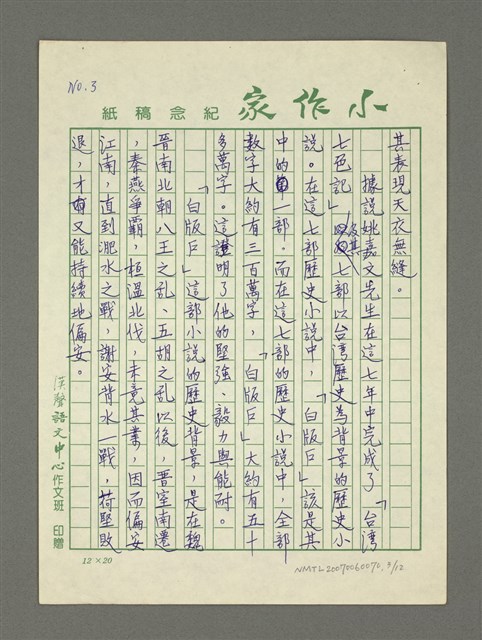 No.3
小作家 紀念稿紙
其表現天衣無縫。
據說姚嘉文先生在這七年中完成了「台灣
七色記」及其七部以台灣歷史為背景的歷史小
說。在這七部歷史小說中,「白版戶」該是其
中的一部。而在這七部的歷史小說中,全部
數字大約有三百萬字,「白版戶」大約有五十
多萬字。這證明了他的堅強、毅力與能耐。
「白版戶」這部小說的歷史背景,是在魏
晉南北朝八王之亂、五胡之乱以後,晉室南遷
,秦燕爭霸,桓溫北伐,未竟其業,因而偏安
江南,直到淝水之戰,謝安背水一戰,苻堅敗
退,才又能持續地偏安。
漢聲語文中心作文班 印贈
12×20
NMTL20070060070_3/12